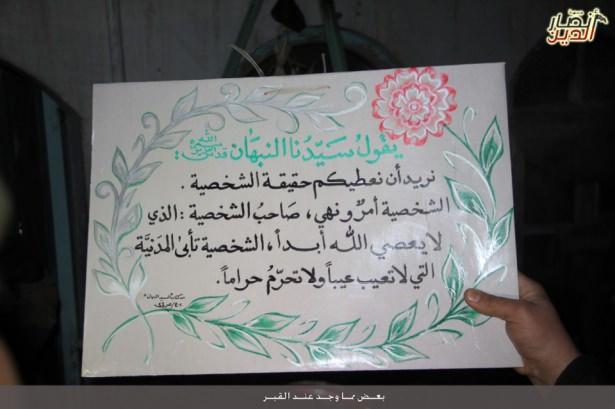 جبهة
أنصار
الدين
يقول سيّدنا النبهان قدس الله سره:
نريد أن نعطيكم حقيقة الشخصية.
الشخصية أمرٌ ونهي، صاحبُ الشخصية: الذي
لا يعصي الله أبداً، الشخصية تأبىٰ المدنيَّة
التي لا تعيب عيباً ولا تحرّمُ حراماً.
بعض مما وجد عند القبر